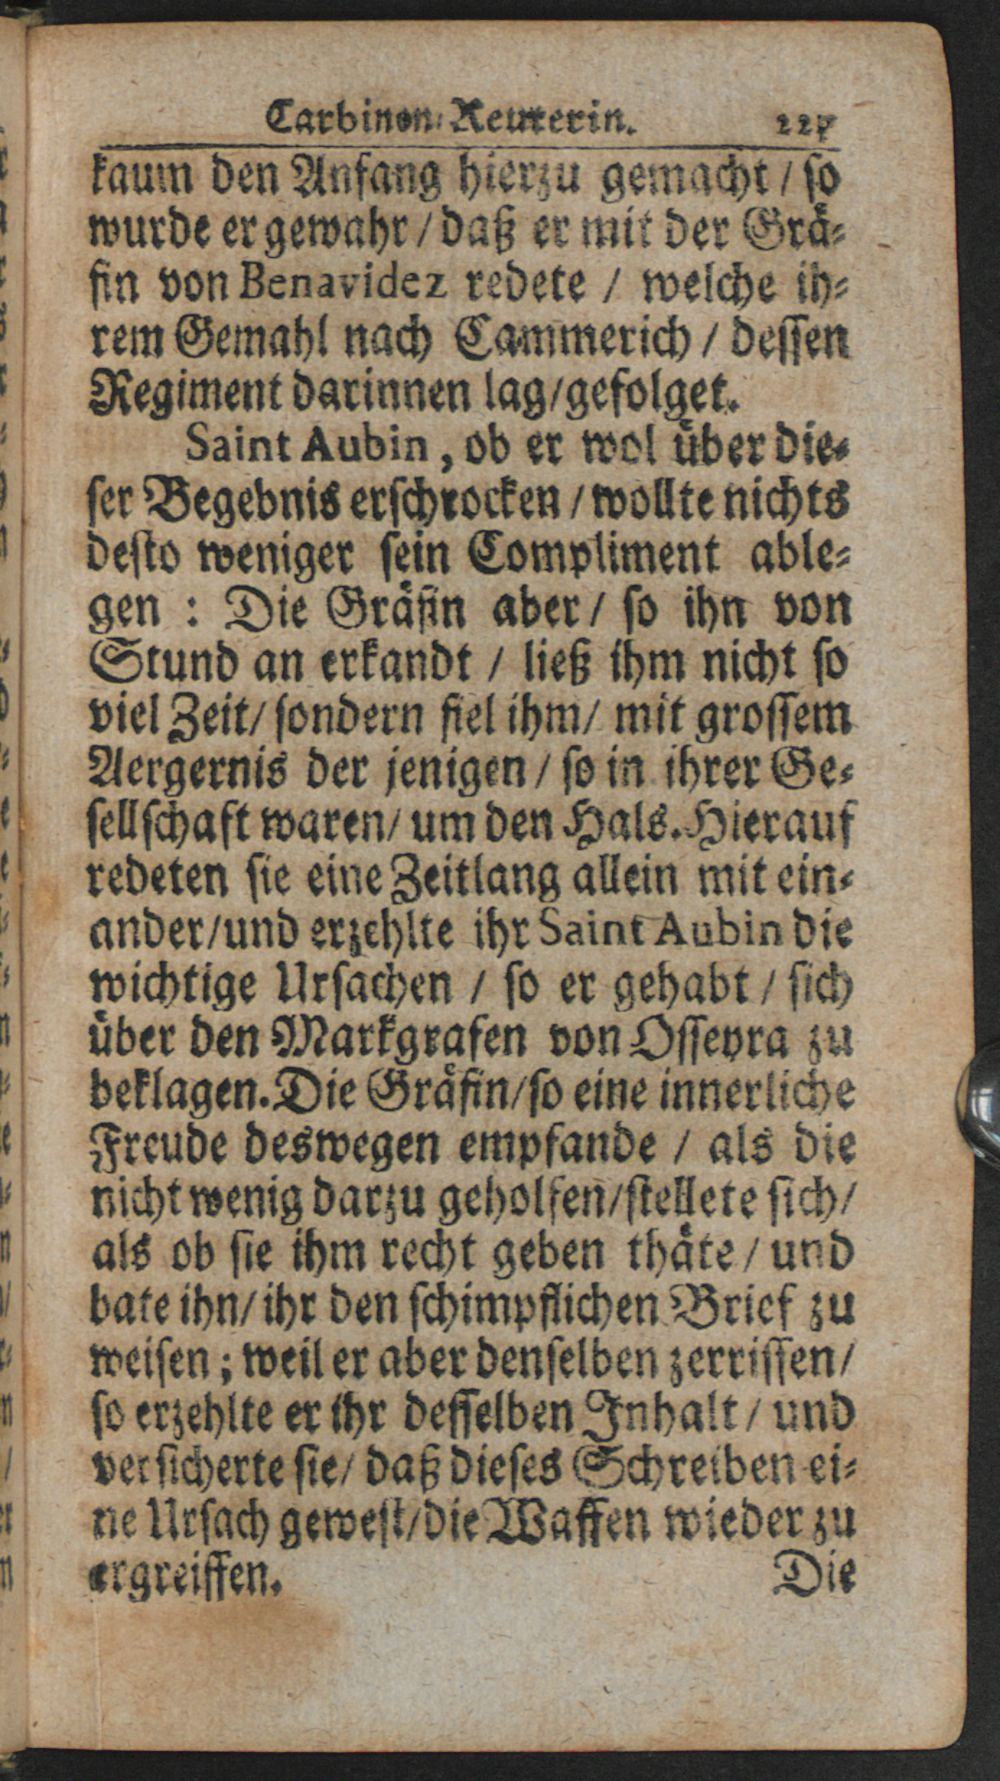 Carbinen-Reuterin.
kaum den Anfang hierzu gemacht / so
wurde er gewahr / daß er mit der Grä-
fin von Benavidez redete / welche ih-
rem Gemahl nach Cammerich / dessen
Regiment darinnen lag/gefolget.
Saint Aubin, ob er wol über die-
ser Begebnis erschrocken / wollte nichts
desto weniger sein Compliment able-
gen : Die Gräfin aber / so ihn von
Stund an erkandt / ließ ihm nicht so
viel Zeit/ sondern fiel ihm/ mit grossem
Aergernis der jenigen / so in ihrer Ge-
sellschaft waren/ um den Hals. Hierauf
redeten sie eine Zeitlang allein mit ein-
ander/und erzehlte ihr Saint Aubin die
wichtige Ursachen / so er gehabt / sich
über den Markgrafen von Osseyra zu
beklagen. Die Gräfin/so eine innerliche
Freude deswegen empfande / als die
nicht wenig darzu geholfen/stellete sich/
als ob sie ihm recht geben thäte / und
bate ihn/ ihr den schimpflichen Brief zu
weisen ; weil er aber denselben zerrissen/
so erzehlte er ihr desselben Inhalt / und
versicherte sie/ daß dieses Schreiben ei-
ne Ursach gewest/die Waffen wieder zu
ergreiffen. Die